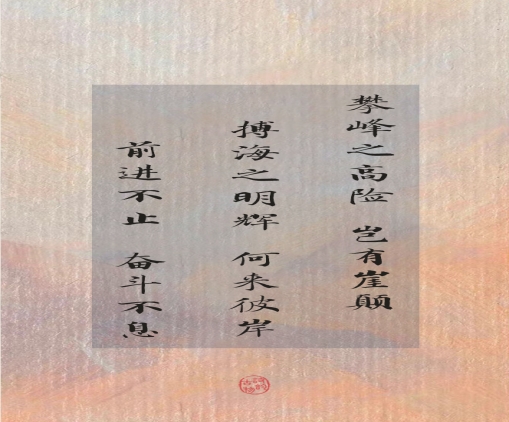 攀峰之高险 岂有崖颠
搏海之明辉 何来彼岸
前进不止 奋斗不息